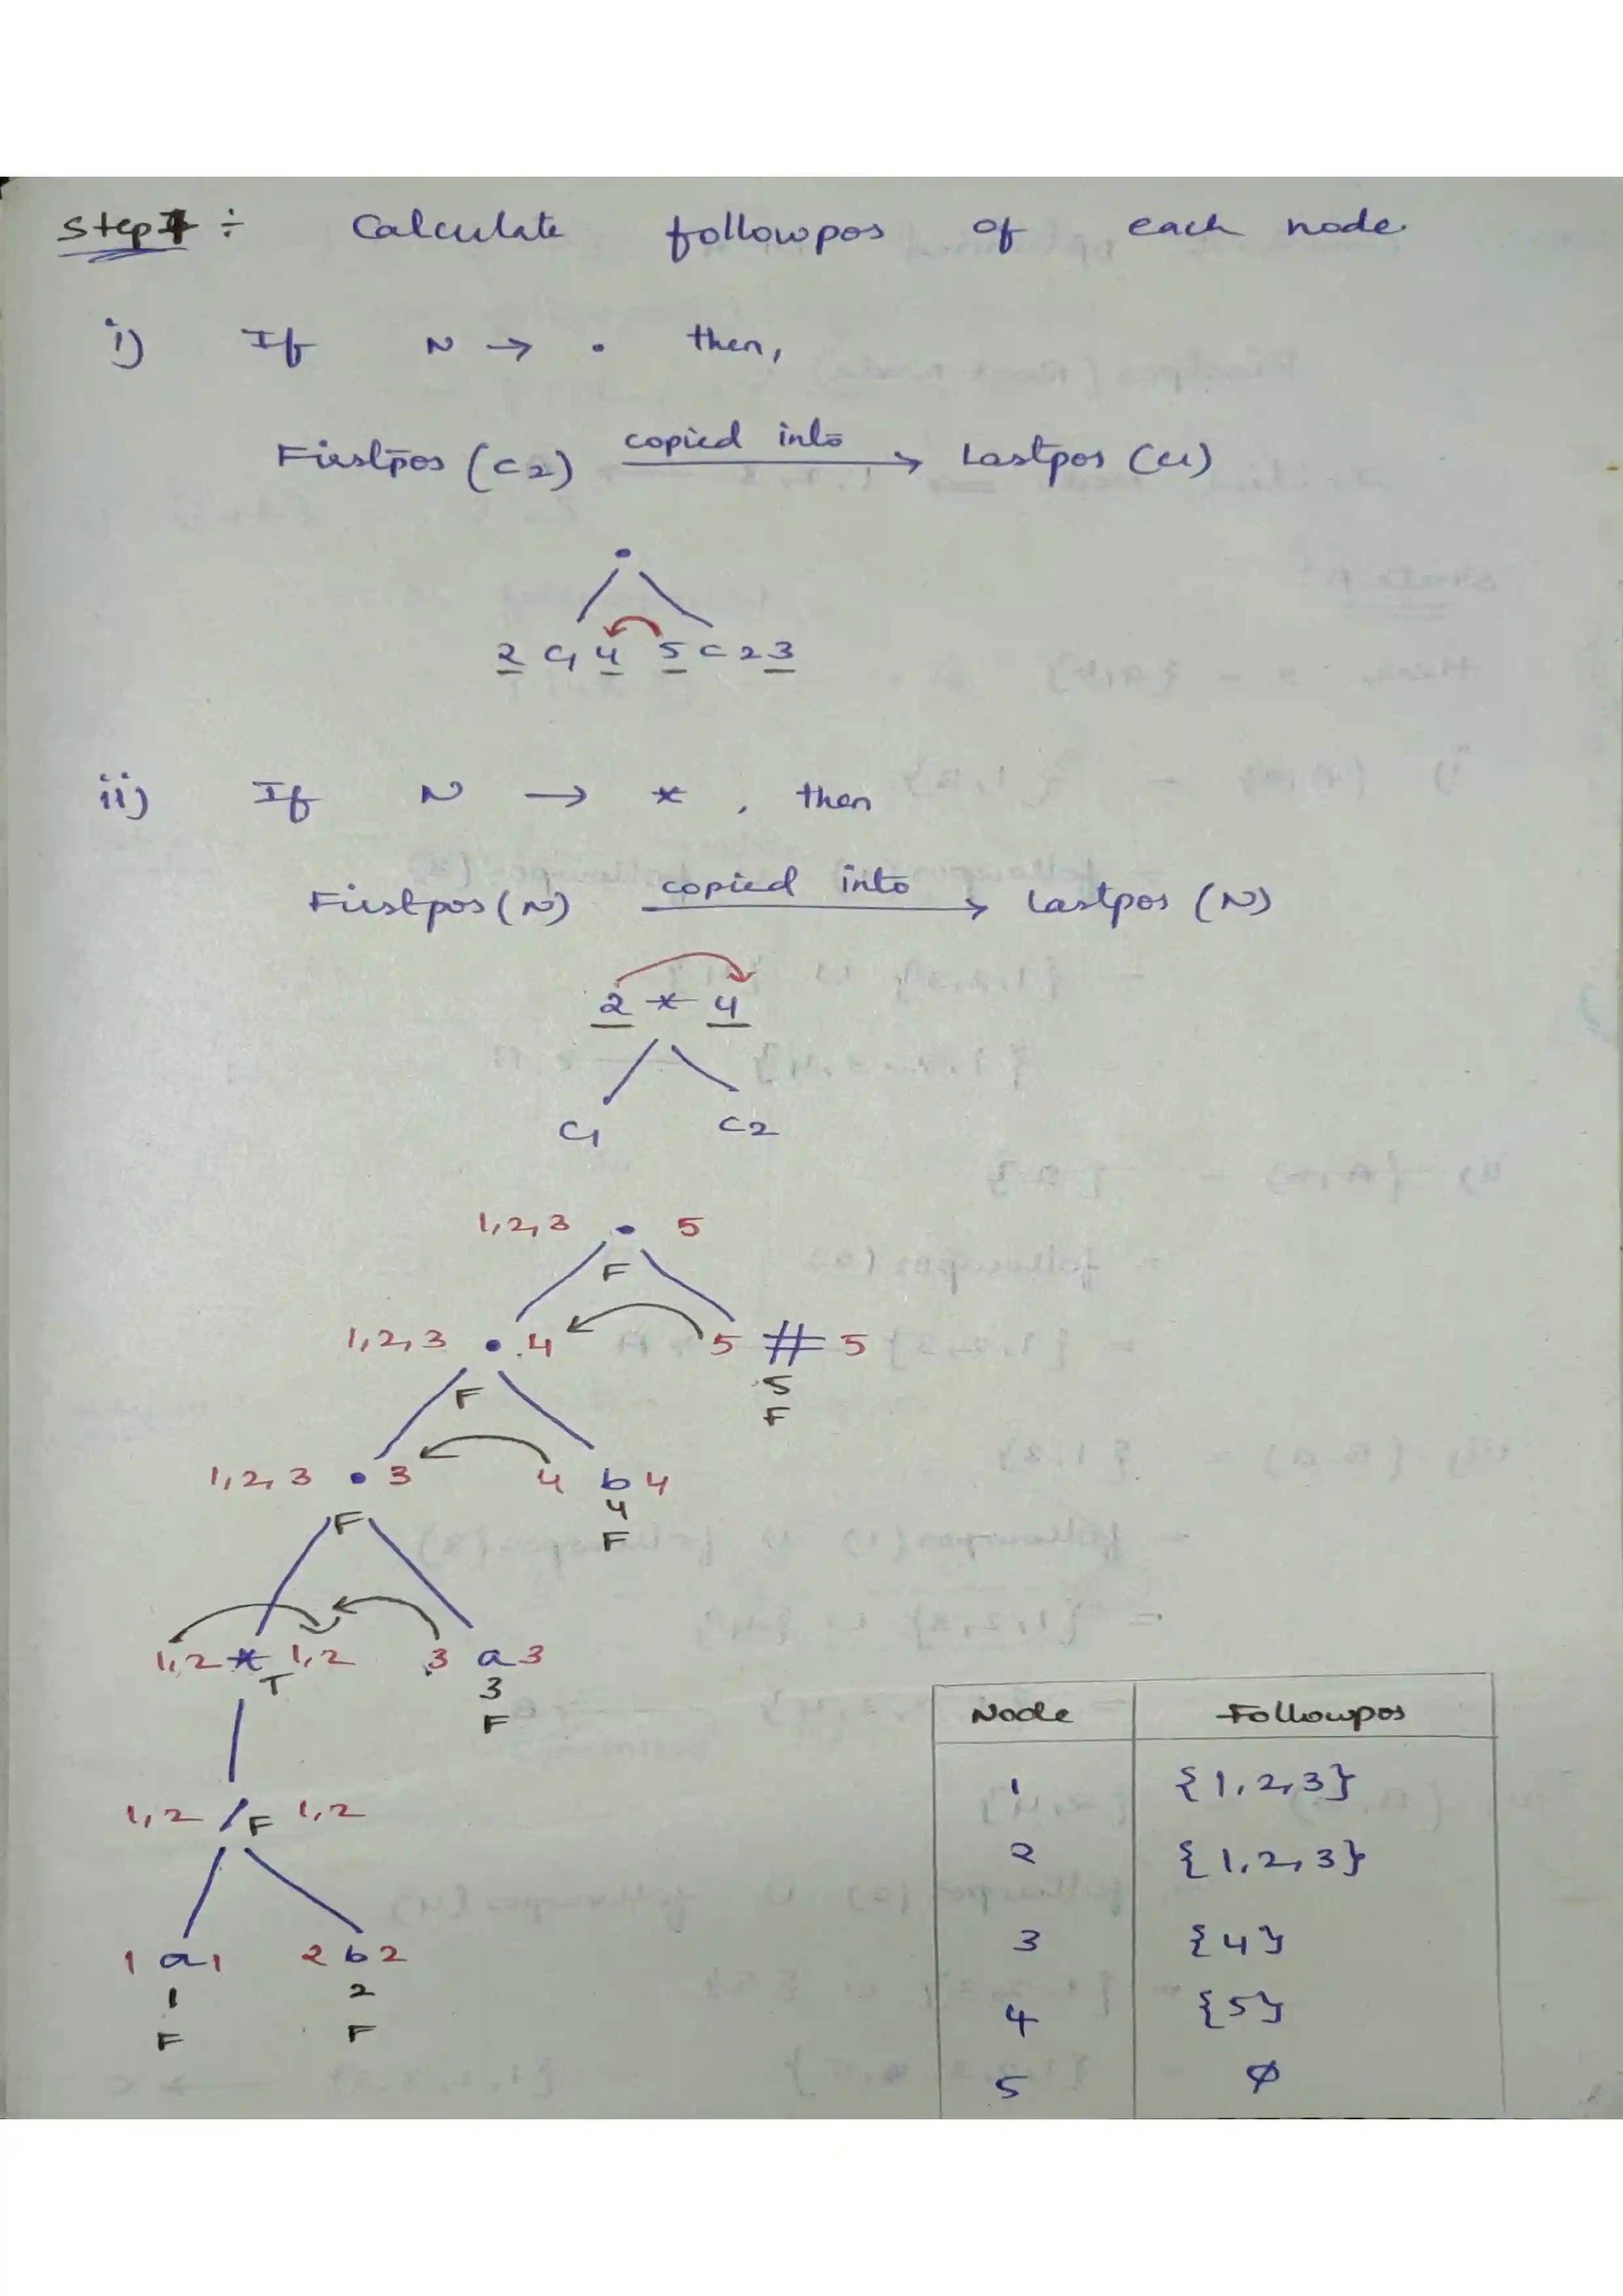 Step 4 ÷ Calculate followpos of each node.
i) If N → • then,
Firstpos (C2) copied into → Lastpos (C1)
•
2 C1 4 5 C2 3
ii) If N → * , then
Firstpos (N) copied into → Lastpos (N)
2 * 4
C1 C2
1,2,3 • 5
F
1,2,3 • 4 5 # 5
F 5
F
1,2,3 • 3 4 b 4
4
F F
1,2 * 1,2 3 a 3
T 3
F
1,2 / F 1,2
1 a 1 2 b 2
1 2
F F
Node Followpos
1 {1,2,3}
2 {1,2,3}
3 {4}
4 {5}
5 ϕ